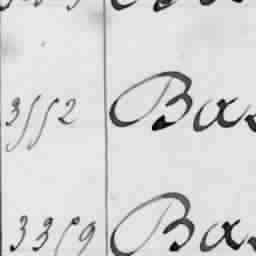 3552 Bas
3359 Bas